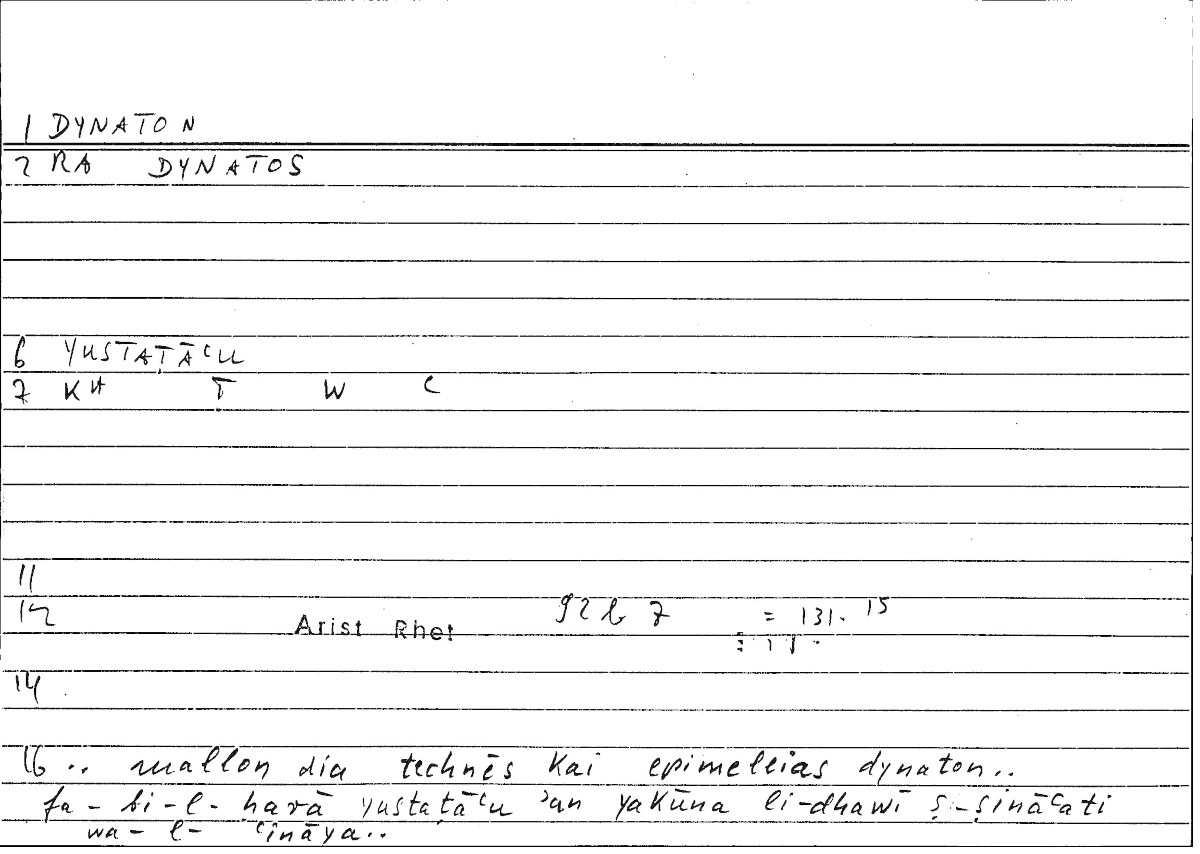 1 DYNATON
2 RA DYNATOS
6 YUSTAṬĀᶜU
7 KH Ṭ W ᶜ
11
12 Arist Rhet 92 b 7 = 131. 15
14
16 .. mallon dia technēs kai epimeleias dynaton..
fa-bi-l-harā yustaṭāᶜu ʾan yakūna li-dhawī ṣ-ṣināᶜati
wa-l-ᶜināya..